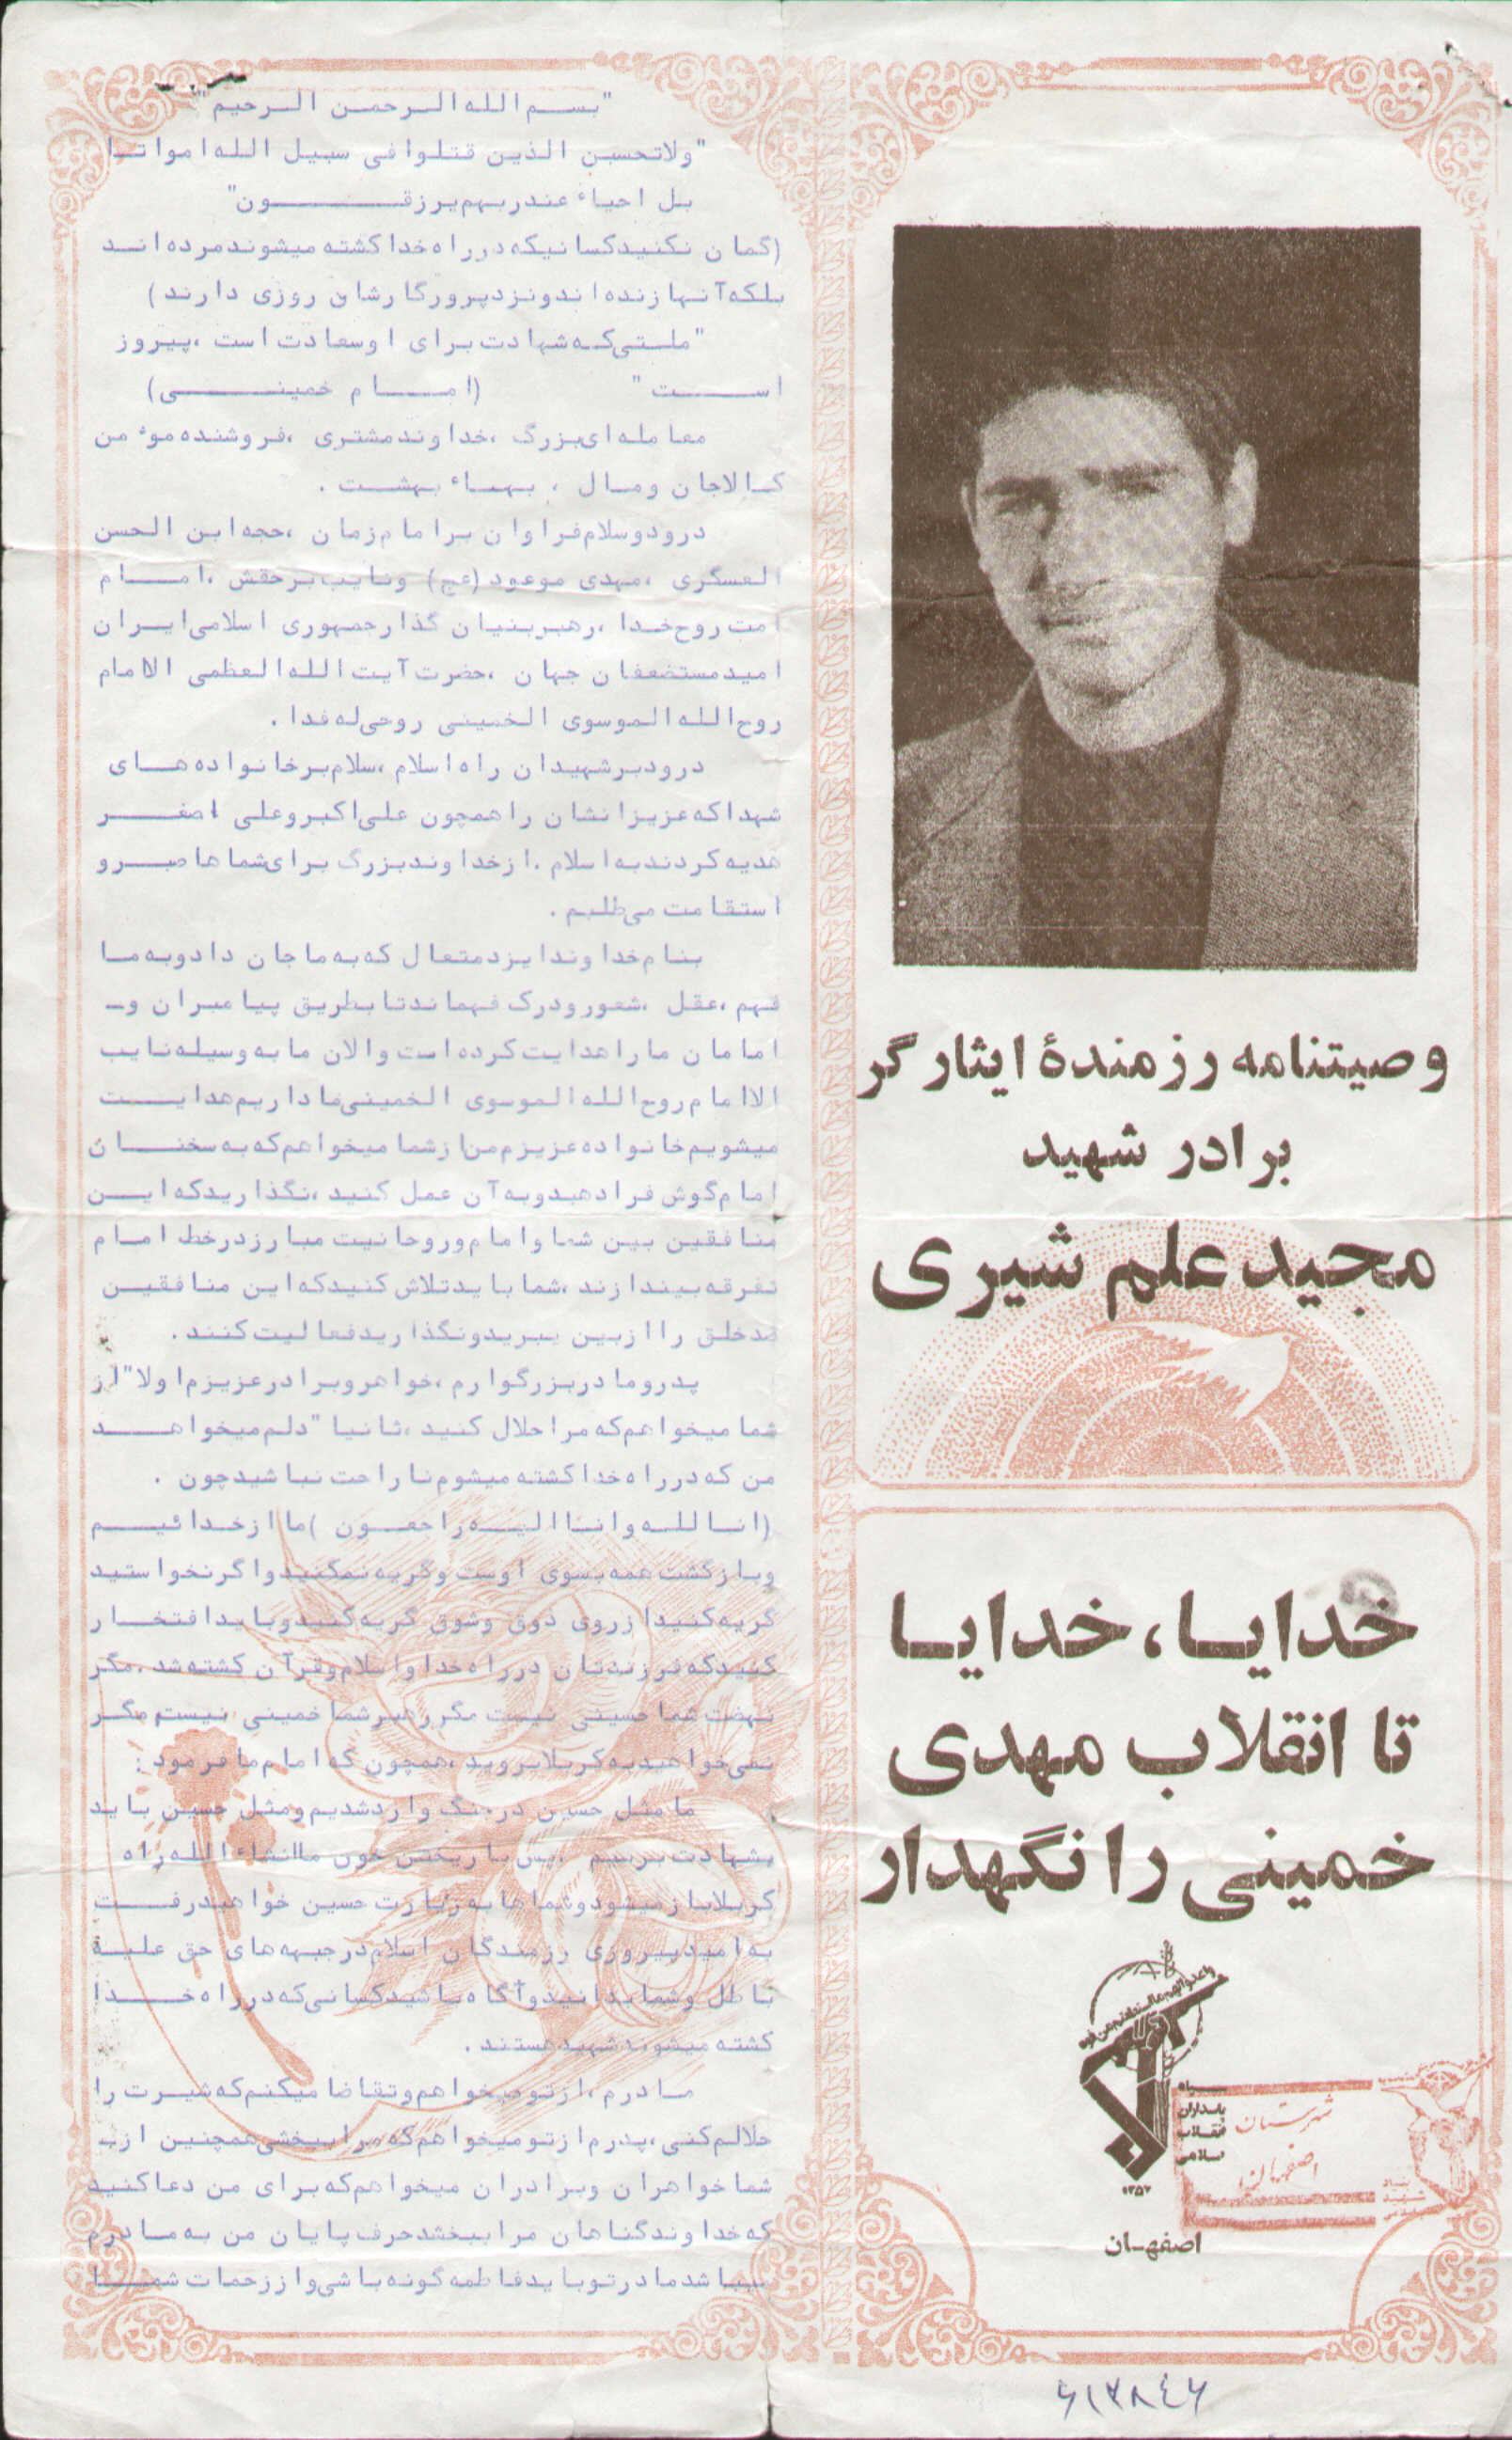 وصیتنامه رزمندهٔ ایثارگر
برادر شهید
مجید علم شیری
خدایا، خدایا
تا انقلاب مهدی
خمینی را نگهدار
سپاه
پاسداران
انقلاب
اسلامی
اصفهان
شهرستان
اصفهان
بنیاد
شهید
۶۱۲۸۴۶
"بسم الله الرحمن الرحیم"
"ولاتحسبن الذین قتلوا فی سبیل الله امواتا
بل احیاء عندربهم یرزقون"
(گمان نکنید کسانیکه درراه خدا کشته میشوند مرده اند
بلکه آنها زنده اند ونزد پرورگارشان روزی دارند)
"ملتی که شهادت برای اوسعادت است ،پیروز
است" (امام خمینی)
معامله ای بزرگ ،خداوند مشتری ،فروشنده موءمن
کالاجان ومال ، بهاء بهشت .
درودوسلام فراوان برامام زمان ،حجه ابن الحسن
العسگری ،مهدی موعود (عج) ونایب برحقش ،امام
امت روح خدا ،رهبربنیان گذارجمهوری اسلامی ایران
امید مستضعفان جهان ،حضرت آیت الله العظمی الامام
روح الله الموسوی الخمینی روحی له فدا .
درودبرشهیدان راه اسلام ،سلام برخانواده های
شهدا که عزیزانشان را همچون علی اکبروعلی اصغر
هدیه کردند به اسلام .ازخداوند بزرگ برای شماها صبرو
استقامت می طلبم .
بنام خداوند ایزد متعال که به ما جان دادوبه ما
فهم ،عقل ،شعورودرک فهماند تا بطریق پیامبران و-
امامان مارا هدایت کرده است والان ما به وسیله نایب
الاامام روح الله الموسوی الخمینی ما داریم هدایت
میشویم خانواده عزیزم من ازشما میخواهم که به سخنان
امام گوش فرادهیدوبه آن عمل کنید ،نگذارید که این
منافقین بین شما وامام وروحانیت مبارزدرخط امام
تفرقه بیندازند ،شما باید تلاش کنید که این منافقین
ضدخلق را ازبین ببریدونگذارید فعالیت کنند .
پدرومادربزرگوارم ،خواهروبرادرعزیزم اولا" از
شما میخواهم که مرا حلال کنید ،ثانیا "دلم میخواهد
من که درراه خدا کشته میشوم ناراحت نباشید چون .
(انالله وانا الیه راجعون) ما ازخدائیم
وبازگشت همه بسوی اوست وگریه نمکنید واگرنخواستید
گریه کنید ازروی ذوق وشوق گریه کنید وباید افتخار
کنید که فرزندتان درراه خدا واسلام وقرآن کشته شد ،مگر
نهضت شما حسینی نیست مگررهبرشما خمینی نیست مگر
نمی خواهید به کربلا بروید ،همچون که امام ما فرمود :
ما مثل حسین درجنگ واردشدیم ومثل حسین باید
بشهادت برسیم ،پس با ریختن خون ما انشاءالله راه
کربلا بازمیشود وشماها به زیارت حسین خواهیدرفت
به امید پیروزی رزمندگان اسلام درجبهه های حق علیه
باطل وشما بدانید وآگاه باشید کسانی که درراه خدا
کشته میشوند شهید هستند .
مادرم ،ازتو میخواهم وتقاضا میکنم که شیرت را
حلالم کنی ،پدرم ازتو میخواهم که مرا ببخشی همچنین از-
شما خواهران وبرادران میخواهم که برای من دعا کنید
که خداوند گناهان مرا ببخشد حرف پایان من به مادرم
میباشد مادرتو باید فاطمه گونه باشی واززحمات شما